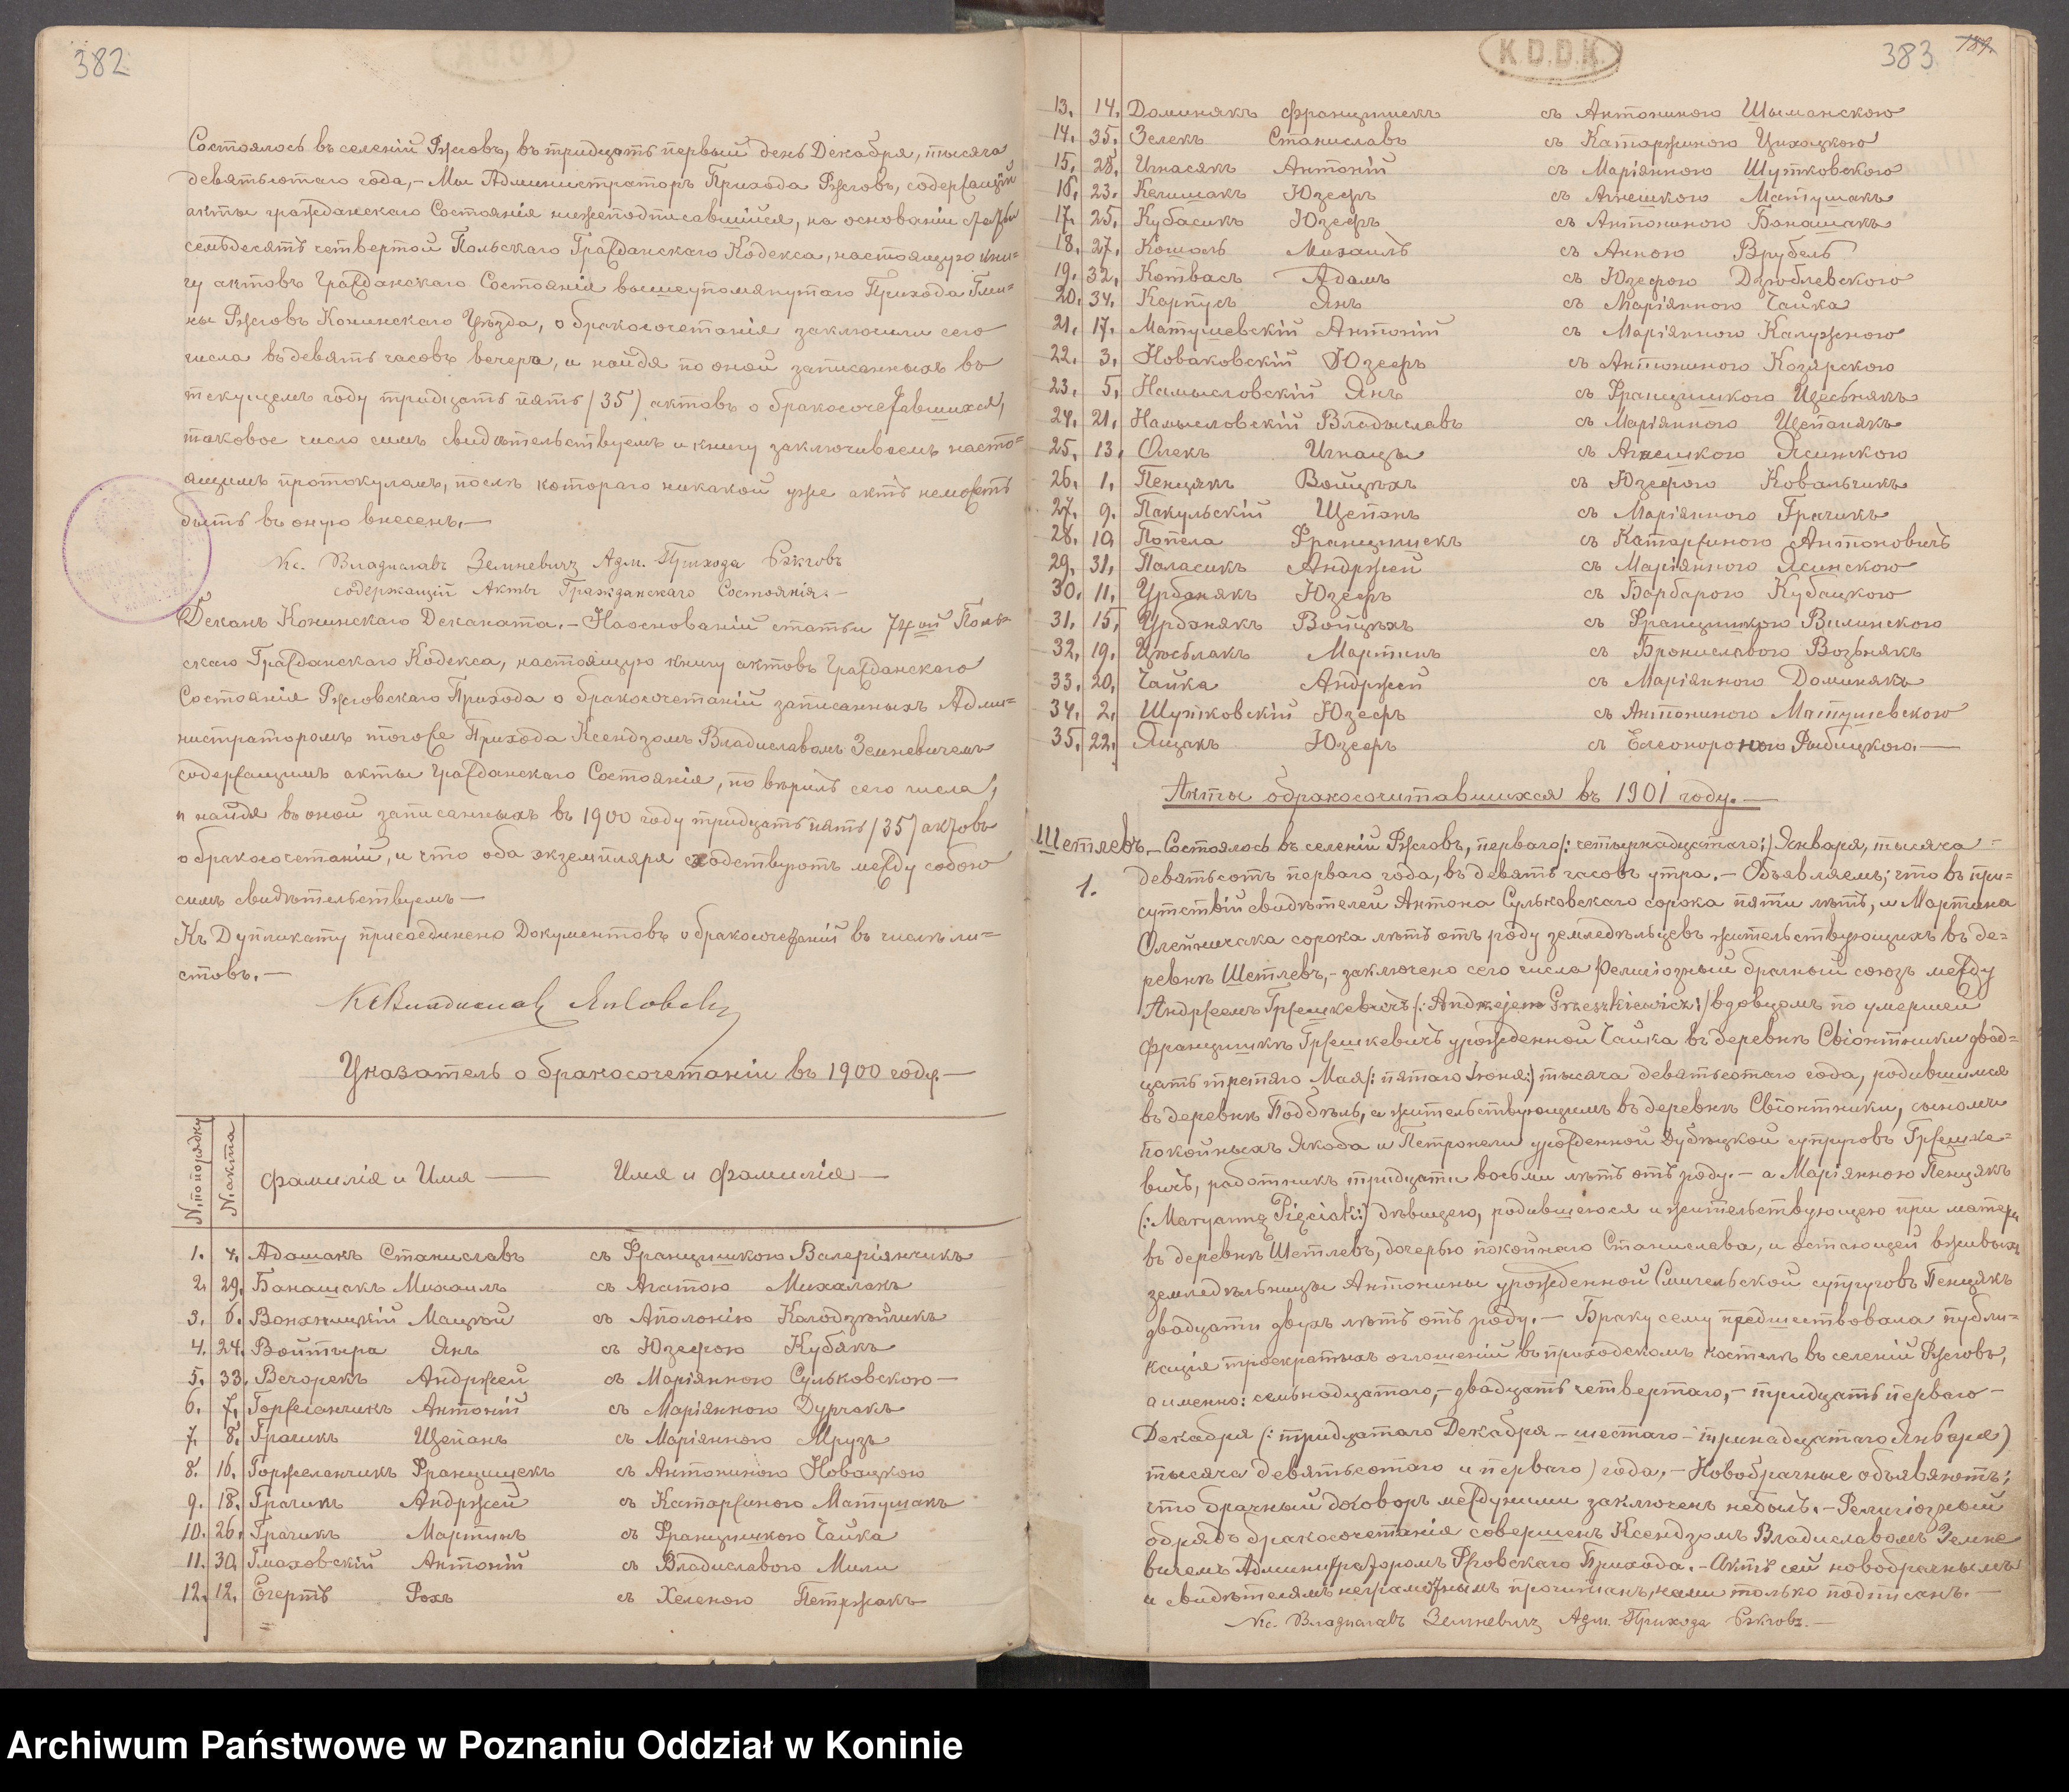 382
Состоялось въ селеній Ржговъ, въ тридцать первый день Декабря, тысяча
девятьсотаго года,- Мы Администраторъ Прихода Ржговъ, содержащій
акты гражданскаго Состоянія нижеподписавшійся, на основаніи статьи
семьдесятъ четвертой Польскаго Гражданскаго Кодекса, настоящую кни=
гу актовъ Гражданскаго Состоянія вышеупомянутаго Прихода Гми=
ны Ржговъ Конинскаго Уѣзда, о бракосочетанія заключили сего
числа въ девять часовъ вечера, и найдя по оной записанныхъ въ
текущемъ году тридцать пять /35/ актовъ о бракосочетавшихся,
таковое число симъ свидѣтельствуемъ и книгу заключиваемъ насто=
ящимъ протокуломъ, послѣ котораго никакой уже актъ неможетъ
быть въ оную внесенъ.—
Кс. Владиславъ Земневичъ Адм. Прихода Ржговъ
содержащій Акты Гражданскаго Состоянія.—
Деканъ Конинскаго Деканата.- На основаній статьи 74ой Поль=
скаго Гражданскаго Кодекса, настоящую книгу актовъ Гражданскаго
Состоянія Ржговскаго Прихода о бракосочетаній записанныхъ Адми=
нистраторомъ тогоже Прихода Ксендзомъ Владиславомъ Земневичемъ
содержащимъ акты Гражданскаго Состоянія, повѣрилъ сего числа,
и найдя въ оной записанныхъ въ 1900 году тридцать пять /35/ актовъ
о бракосочетаній, и что оба экземпляра сходствуютъ между собою
симъ свидѣтельствуемъ —
Къ Дупликату присоединено Документовъ о бракосочетаній въ числѣ ли=
стовъ.—
Указатель о бракосочетаніи въ 1900 году.—
№ по порядку
№ акта
Фамилія и Имя — Имя и Фамилія —
1. 4. Адамакъ Станиславъ съ Францишкою Валеріянчикъ
2. 29. Банашакъ Михаилъ съ Агатою Михалакъ
3. 6. Мацѣй съ Аполонію Колодзѣйчикъ
4. 24. Войтыра Янъ съ Юзефою Кубякъ
5. 33. Вечорекъ Андржей съ Маріянною Сульковскою —
6. 7. Горжеланчикъ Антоній съ Маріянною Дурчакъ
7. 8. Грачикъ Щепанъ съ Маріянною Мрузъ
8. 16. Горжеланчикъ Францишекъ съ Антониною Новацкою
9. 18. Грачикъ Андржей съ Катаржиною Матушакъ
10. 26. Грачикъ Мартинъ съ Францишкою Чайка
11. 30. Гмаховскій Антоній съ Владиславою Мили
12. 12. Егертъ Рохъ съ Хеленою Петржакъ
K.D.D.K.
383
189.
13. 14. Доминякъ Францишекъ съ Антониною Шыманскою
14. 35. Зелекъ Станиславъ съ Катаржиною Цихоцкою
15. 28. Игнасякъ Антоній съ Маріянною Шутковскою
16. 23. Келимакъ Юзефъ съ Агнешкою Матушакъ
17. 25. Кубасикъ Юзефъ съ Антониною Банашакъ
18. 27. Кошаль Михаилъ съ Анною Врубель
19. 32. Котвасъ Адамъ съ Юзефою Дзюблевскою
20. 34. Карпусъ Янъ съ Маріянною Чайка
21. 17. Матушевскій Антоній съ Маріянною Калужною
22. 3. Новаковскій Юзефъ съ Антониною Козярскою
23. 5. Намысловскій Янъ съ Францишкою Цесьнякъ
24. 21. Намысловскій Владыславъ съ Маріянною Щепанякъ
25. 13. Олекъ Игнацы съ Агнешкою Ясинскою
26. 1. Пенцякъ Войцѣхъ съ Юзефою Ковальчикъ
27. 9. Пакульскій Щепанъ съ Маріянною Грачикъ
28. 10. Попела Францишекъ съ Катаржиною Антоновичъ
29. 31. Паласикъ Андржей съ Маріянною Ясинскою
30. 11. Урбанякъ Юзефъ съ Барбарою Кубацкою
31. 15. Урбанякъ Войцѣхъ съ Францишкою Вилинскою
32. 19. Цюсьлакъ Мартинъ съ Брониславою Возьнякъ
33. 20. Чайка Андржей съ Маріянною Доминякъ
34. 2. Шутковскій Юзефъ съ Антониною Матушевскою
35. 22. Ящакъ Юзефъ съ Елеонорою Рыбицкою.—
Акты о бракосочитавшихся въ 1901 году.—
Шетлевъ.- Состоялось въ селеній Ржговъ, перваго /: четырнадцатаго:/ Января, тысяча
1. девятьсотъ перваго года, въ девять часовъ утра.- Объявляемъ; что въ при=
сутствіи свидѣтелей Антона Сульковскаго сорока пяти лѣтъ, и Мартина
Олейничака сорока лѣтъ отъ роду земледѣльцевъ жительствующихъ въ де=
ревнѣ Шетлевъ,- заключено сего числа религіозный брачный союзъ между
Андржеемъ Гржешкевичъ /: Andrzejem Grzeszkiewicz:/ вдовцомъ по умершей
Францишкѣ Гржешкевичъ урожденной Чайка въ деревнѣ Свіонтники двад=
цать третяго Мая /: пятаго Іюня:/ тысяча девятьсотаго года, родившимся
въ деревнѣ Поддѣль, а жительствующимъ въ деревнѣ Свіонтники, сыномъ
покойныхъ Якоба и Петронели урожденной Дубѣцкой супруговъ Гржешке=
вичъ, работникъ тридцати восьми лѣтъ отъ роду.- а Маріянною Пенцякъ
(: Maryanną Pięciak:) дѣвицею, родившеюся и жительствующею при матери
въ деревнѣ Шетлевъ, дочерью покойнаго Станислава, и остающей въживыхъ
земледѣльницы Антонины урожденной Смигельской супруговъ Пенцякъ
двадцати двухъ лѣтъ отъ роду.— Браку сему предшествовала публи=
кація троекратныхъ оглошеній въ приходскомъ костелѣ въ селеній Ржговъ,
а именно: семьнадцатаго,- двадцать четвертаго,- тридцать перваго-
Декабря (: тридцатаго Декабря - шестаго - тринадцатаго Января)
тысяча девятьсотаго и перваго) года.- Новобрачные объявяютъ;
что брачный договоръ между ними заключенъ небылъ.- Религіозный
обрядъ бракосочетанія совершенъ Ксендзомъ Владиславомъ Земне
вичемъ Администраторомъ Ржговскаго Прихода.- Актъ сей новобрачнымъ
и свидѣтелямъ неграмотнымъ прочитанъ, нами только подписанъ.—
Кс. Владиславъ Земневичъ Адм. Прихода Ржговъ.—
Archiwum Państwowe w Poznaniu Oddział w Koninie